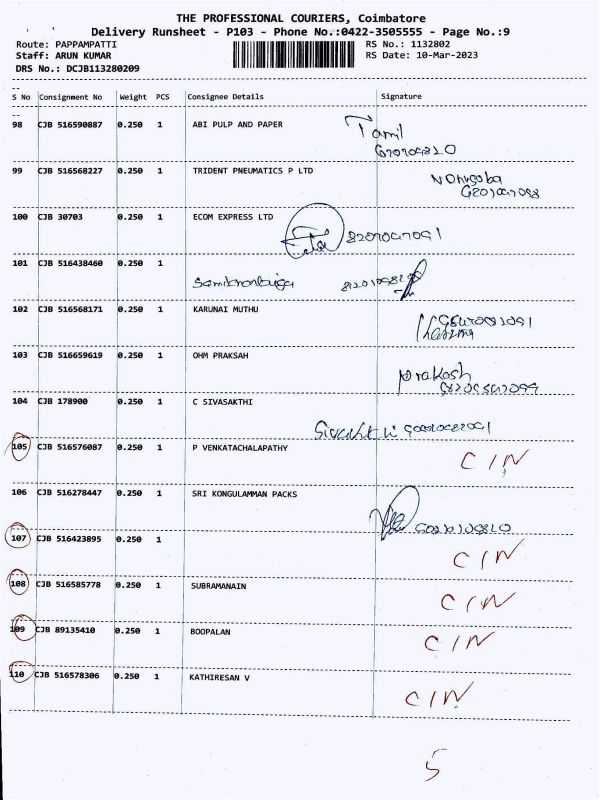 THE PROFESSIONAL COURIERS, Coimbatore
Delivery Runsheet - P103 - Phone No.:0422-3505555 - Page No.:9
Route: PAPPAMPATTI RS No.: 1132802
Staff: ARUN KUMAR RS Date: 10-Mar-2023
DRS No.: DCJB113280209
S No Consignment No Weight PCS Consignee Details Signature
98 CJB 516590887 0.250 1 ABI PULP AND PAPER Tamil
99 CJB 516568227 0.250 1 TRIDENT PNEUMATICS P LTD
100 CJB 30703 0.250 1 ECOM EXPRESS LTD
101 CJB 516438460 0.250 1
102 CJB 516568171 0.250 1 KARUNAI MUTHU
103 CJB 516659619 0.250 1 OHM PRAKSAH prakosh
104 CJB 178900 0.250 1 C SIVASAKTHI
105 CJB 516576087 0.250 1 P VENKATACHALAPATHY CIN
106 CJB 516278447 0.250 1 SRI KONGULAMMAN PACKS
107 CJB 516423895 0.250 1 CIN
108 CJB 516585778 0.250 1 SUBRAMANAIN CIN
109 CJB 89135410 0.250 1 BOOPALAN CIN
110 CJB 516578306 0.250 1 KATHIRESAN V CIN
5